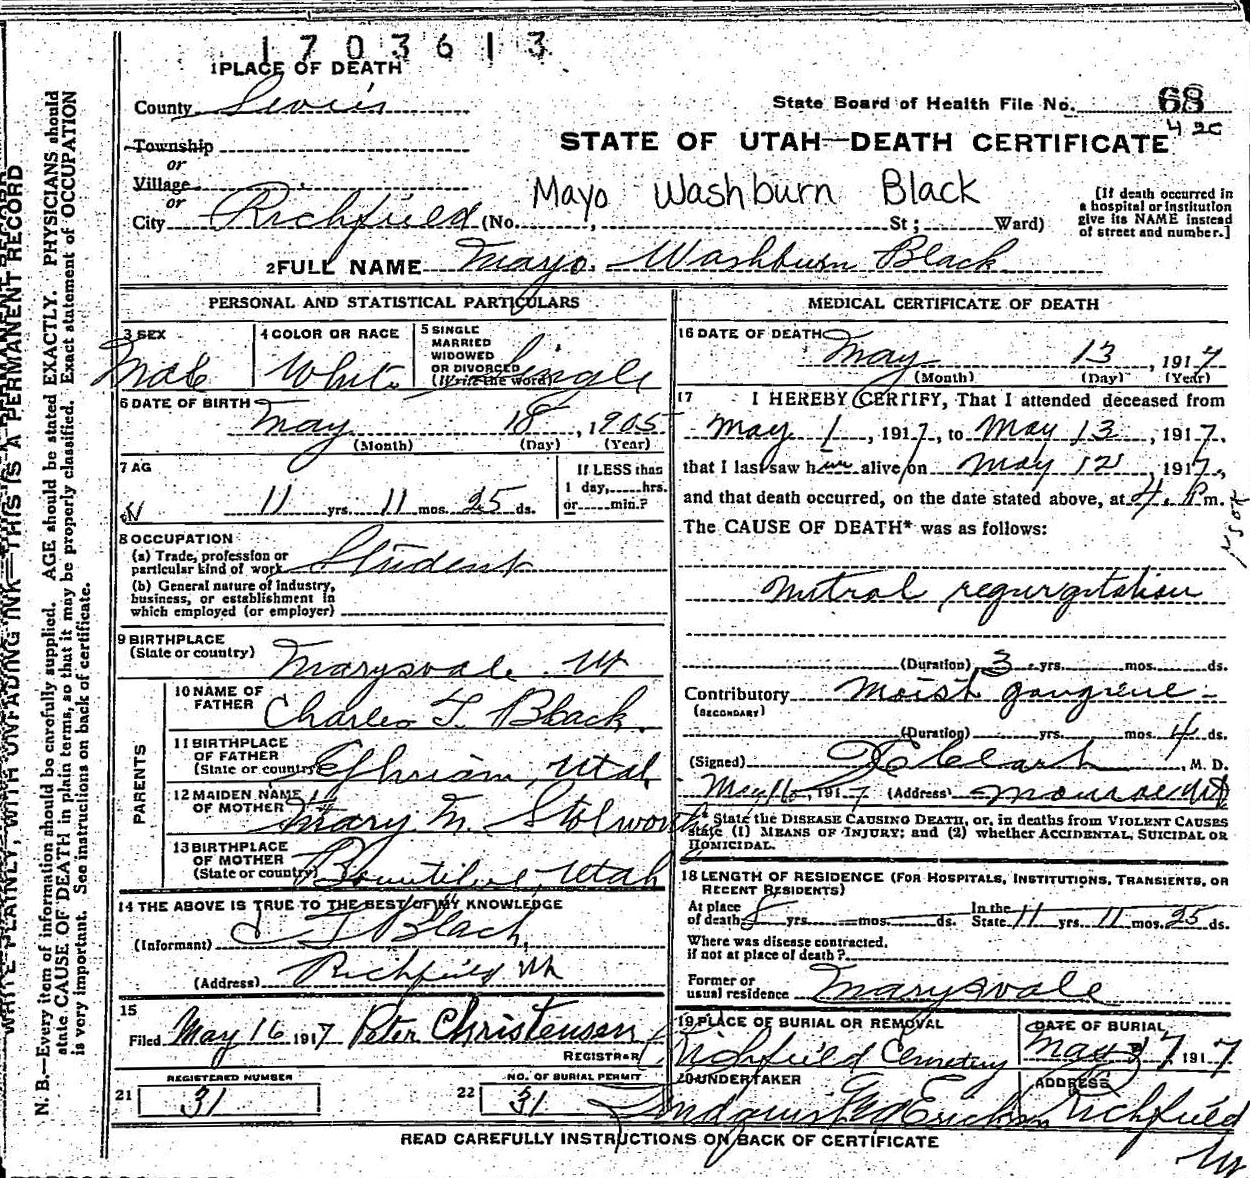 1703613
1 PLACE OF DEATH
County Sevier
State Board of Health File No. 68
42c
Township
or
Village
or
STATE OF UTAH—DEATH CERTIFICATE
Mayo Washburn Black
City Richfield (No. , St; Ward)
[If death occurred in
a hospital or institution
give its NAME instead
of street and number.]
2 FULL NAME Mayo Washburn Black
PERSONAL AND STATISTICAL PARTICULARS
3 SEX
Male
4 COLOR OR RACE
White
5 SINGLE
MARRIED
WIDOWED
OR DIVORCED
(Write the word)
Single
6 DATE OF BIRTH
May 18, 1905
(Month) (Day) (Year)
7 AG
11 yrs. 11 mos. 25 ds.
If LESS than
1 day,......hrs.
or......min.?
8 OCCUPATION
(a) Trade, profession or
particular kind of work Student
(b) General nature of industry,
business, or establishment in
which employed (or employer)
9 BIRTHPLACE
(State or country) Marysvale Ut
PARENTS
10 NAME OF
FATHER Charles T. Black
11 BIRTHPLACE
OF FATHER
(State or country) Ephriam, Utah
12 MAIDEN NAME
OF MOTHER Mary M. Stolworth
13 BIRTHPLACE
OF MOTHER
(State or country) Bountiful, Utah
14 THE ABOVE IS TRUE TO THE BEST OF MY KNOWLEDGE
(Informant) C T Black
(Address) Richfield Ut
15
Filed May 16 1917 Peter Christensen
REGISTRAR
REGISTERED NUMBER
21 31
NO. OF BURIAL PERMIT
22 31
MEDICAL CERTIFICATE OF DEATH
16 DATE OF DEATH
May 13, 1917
(Month) (Day) (Year)
17 I HEREBY CERTIFY, That I attended deceased from
May 1, 1917, to May 13, 1917,
that I last saw him alive on May 12, 1917,
and that death occurred, on the date stated above, at 4. P m.
The CAUSE OF DEATH* was as follows:
Mitral regurgitation
(Duration) 3 yrs. mos. ds.
Contributory Moist gangrene
(SECONDARY)
(Duration) yrs. mos. 4 ds.
(Signed) Clark, M. D.
May 16, 1917 (Address) Monroe Ut
* State the DISEASE CAUSING DEATH, or, in deaths from VIOLENT CAUSES
state (1) MEANS OF INJURY; and (2) whether ACCIDENTAL, SUICIDAL OR
HOMICIDAL.
18 LENGTH OF RESIDENCE (FOR HOSPITALS, INSTITUTIONS, TRANSIENTS, OR
RECENT RESIDENTS)
At place
of death 5 yrs. mos. ds.
In the
State 11 yrs. 11 mos. 25 ds.
Where was disease contracted,
if not at place of death?
Former or
usual residence Marysvale
19 PLACE OF BURIAL OR REMOVAL
Richfield Cemetery
DATE OF BURIAL
May 17 1917
20 UNDERTAKER
Lindquist Erickson
ADDRESS
Richfield
Ut
READ CAREFULLY INSTRUCTIONS ON BACK OF CERTIFICATE
WRITE PLAINLY, WITH UNFADING INK—THIS IS A PERMANENT RECORD
N. B.—Every item of information should be carefully supplied. AGE should be stated EXACTLY. PHYSICIANS should
state CAUSE OF DEATH in plain terms, so that it may be properly classified. Exact statement of OCCUPATION
is very important. See instructions on back of certificate.